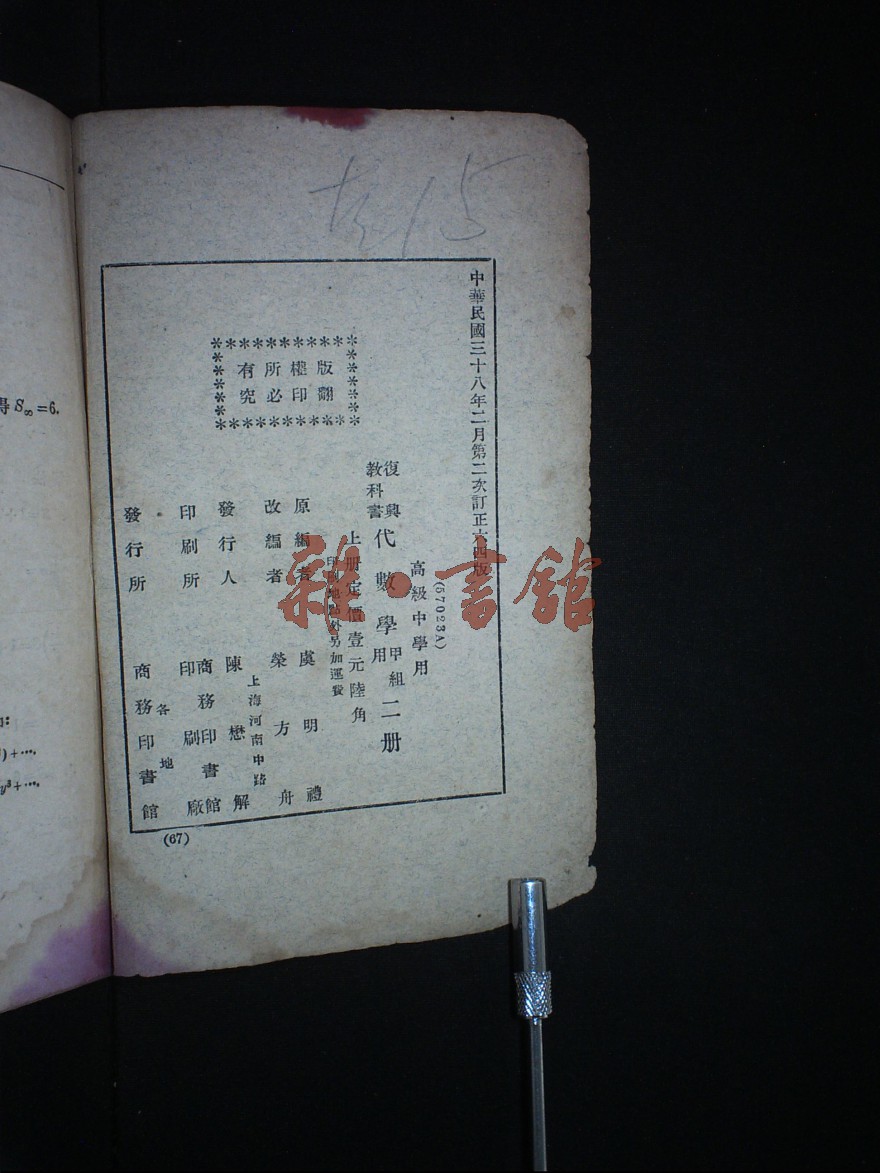 15
中華民國三十八年二月第二次訂正六四版
(57023A)
高級中學用
復興教科書 代數學 甲組用 二册
上册定價壹元陸角
印刷地點外另加運費
版權所有
翻印必究
原編者 虞明禮
改編者 榮方舟
發行人 陳懋解
上海河南中路
印刷所 商務印書館印刷廠
發行所 各地 商務印書館
(67)
得 S∞=6.
)+…
y³+…
雜·書館